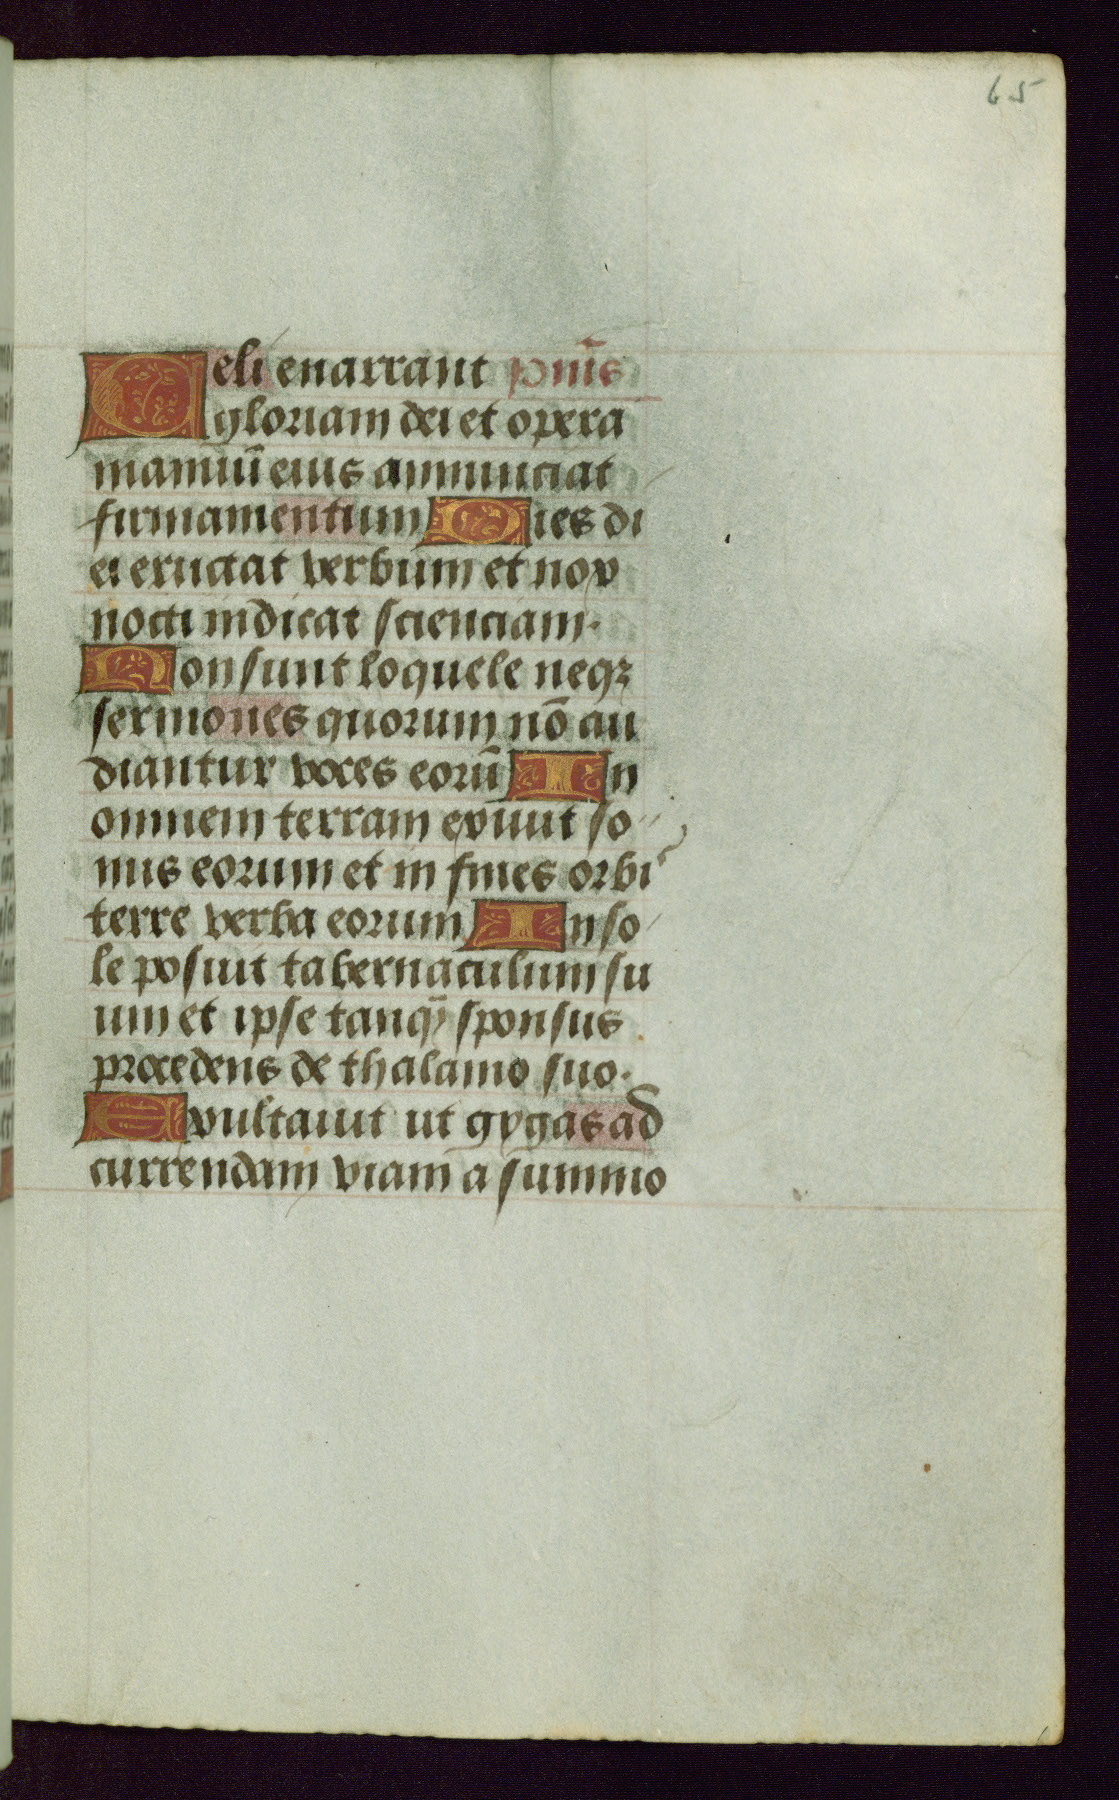 65
Celi enarrant psalmus
gloriam dei et opera
manuū eius annunciat
firmamentum Dies di
ei eructat verbum et nox
nocti indicat scienciam.
Non sunt loquele neqꝫ
sermones quorum nō au
diantur voces eorū In
omnem terram exiuit so
nus eorum et in fines orbis
terre verba eorum In so
le posuit tabernaculum su
um et ipse tanqꝫ sponsus
procedens de thalamo suo.
Exultauit ut gygas ad
currendam viam a summo